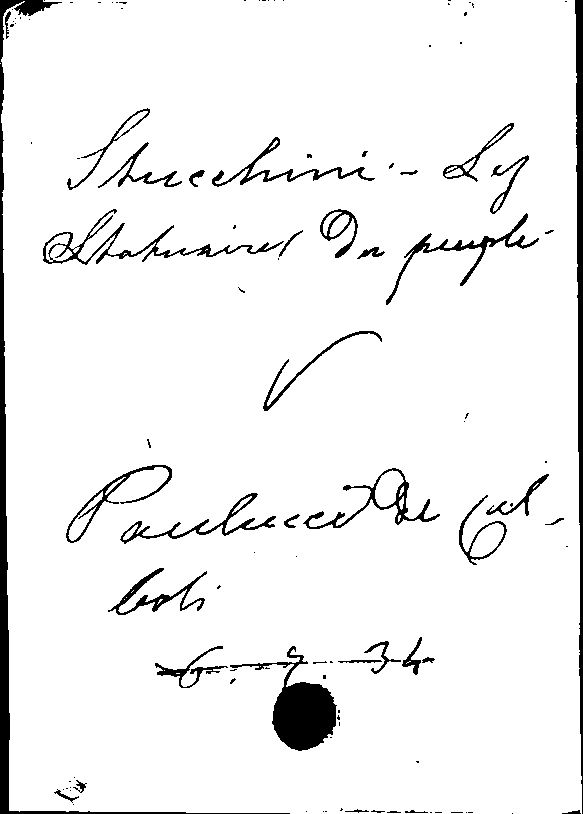 Stucchini - Les
Statuaires du peuple
Paulucci de Cal-
boli
6. 7. 34